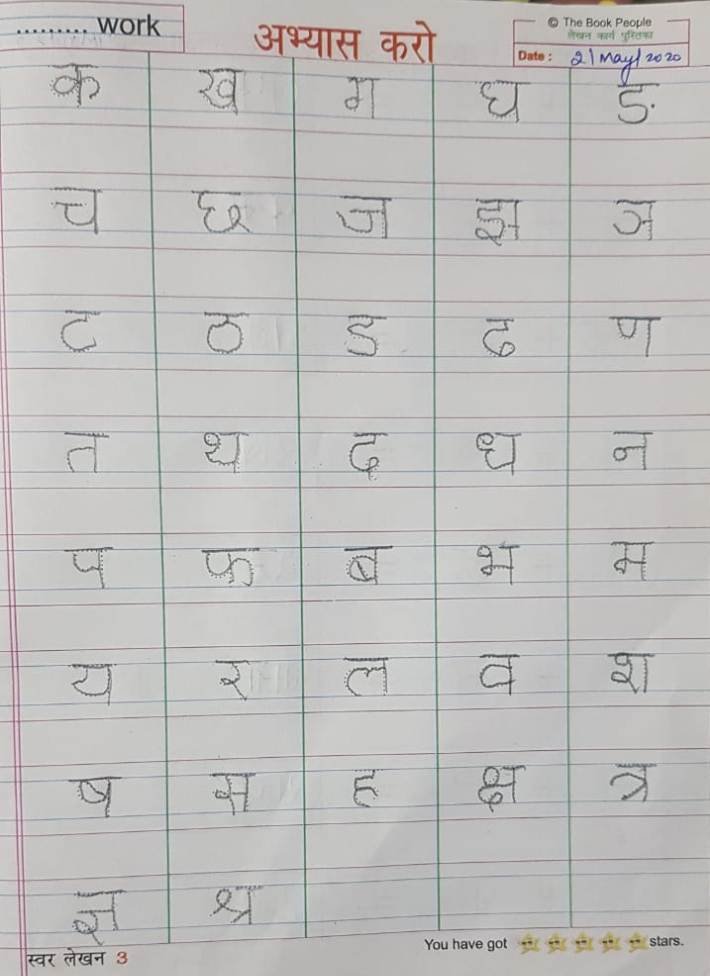 ......... work
अभ्यास करो
© The Book People
लेखन कार्य पुस्तिका
Date : 21 May 2020
क ख ग घ ङ
च छ ज झ ञ
ट ठ ड ढ ण
त थ द ध न
प फ ब भ म
य र ल व श
ष स ह क्ष त्र
ज्ञ श्र
स्वर लेखन 3
You have got stars.